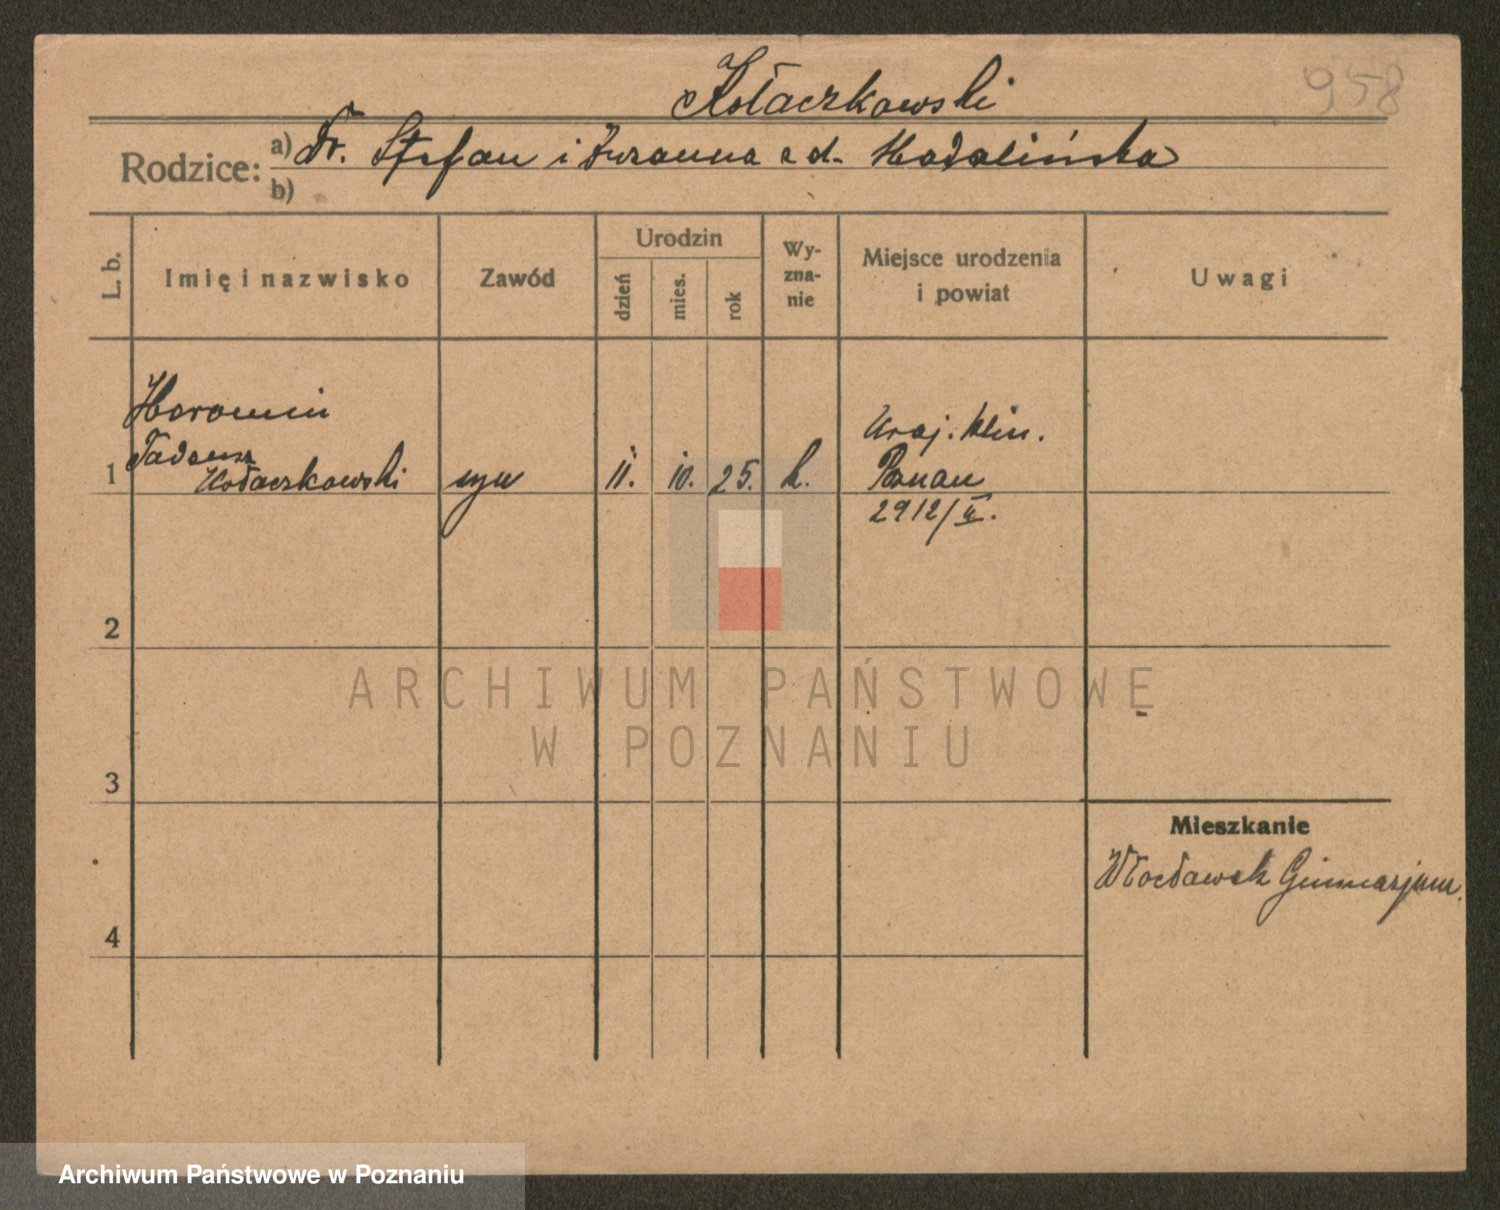 958
Kołaczkowski
Rodzice: a) Dr. Stefan i Zuzanna z d. Madalińska
b)
L. b.
Imię i nazwisko
Zawód
Urodzin
dzień
mies.
rok
Wy-
zna-
nie
Miejsce urodzenia
i powiat
Uwagi
Tadeusz
1 Kołaczkowski syn 11. 10. 25. k.
Kraj. klin.
Poznań
2912/
2
3
4
Mieszkanie
Włocławek Gimnazjum.
ARCHIWUM PAŃSTWOWE
W POZNANIU
Archiwum Państwowe w Poznaniu